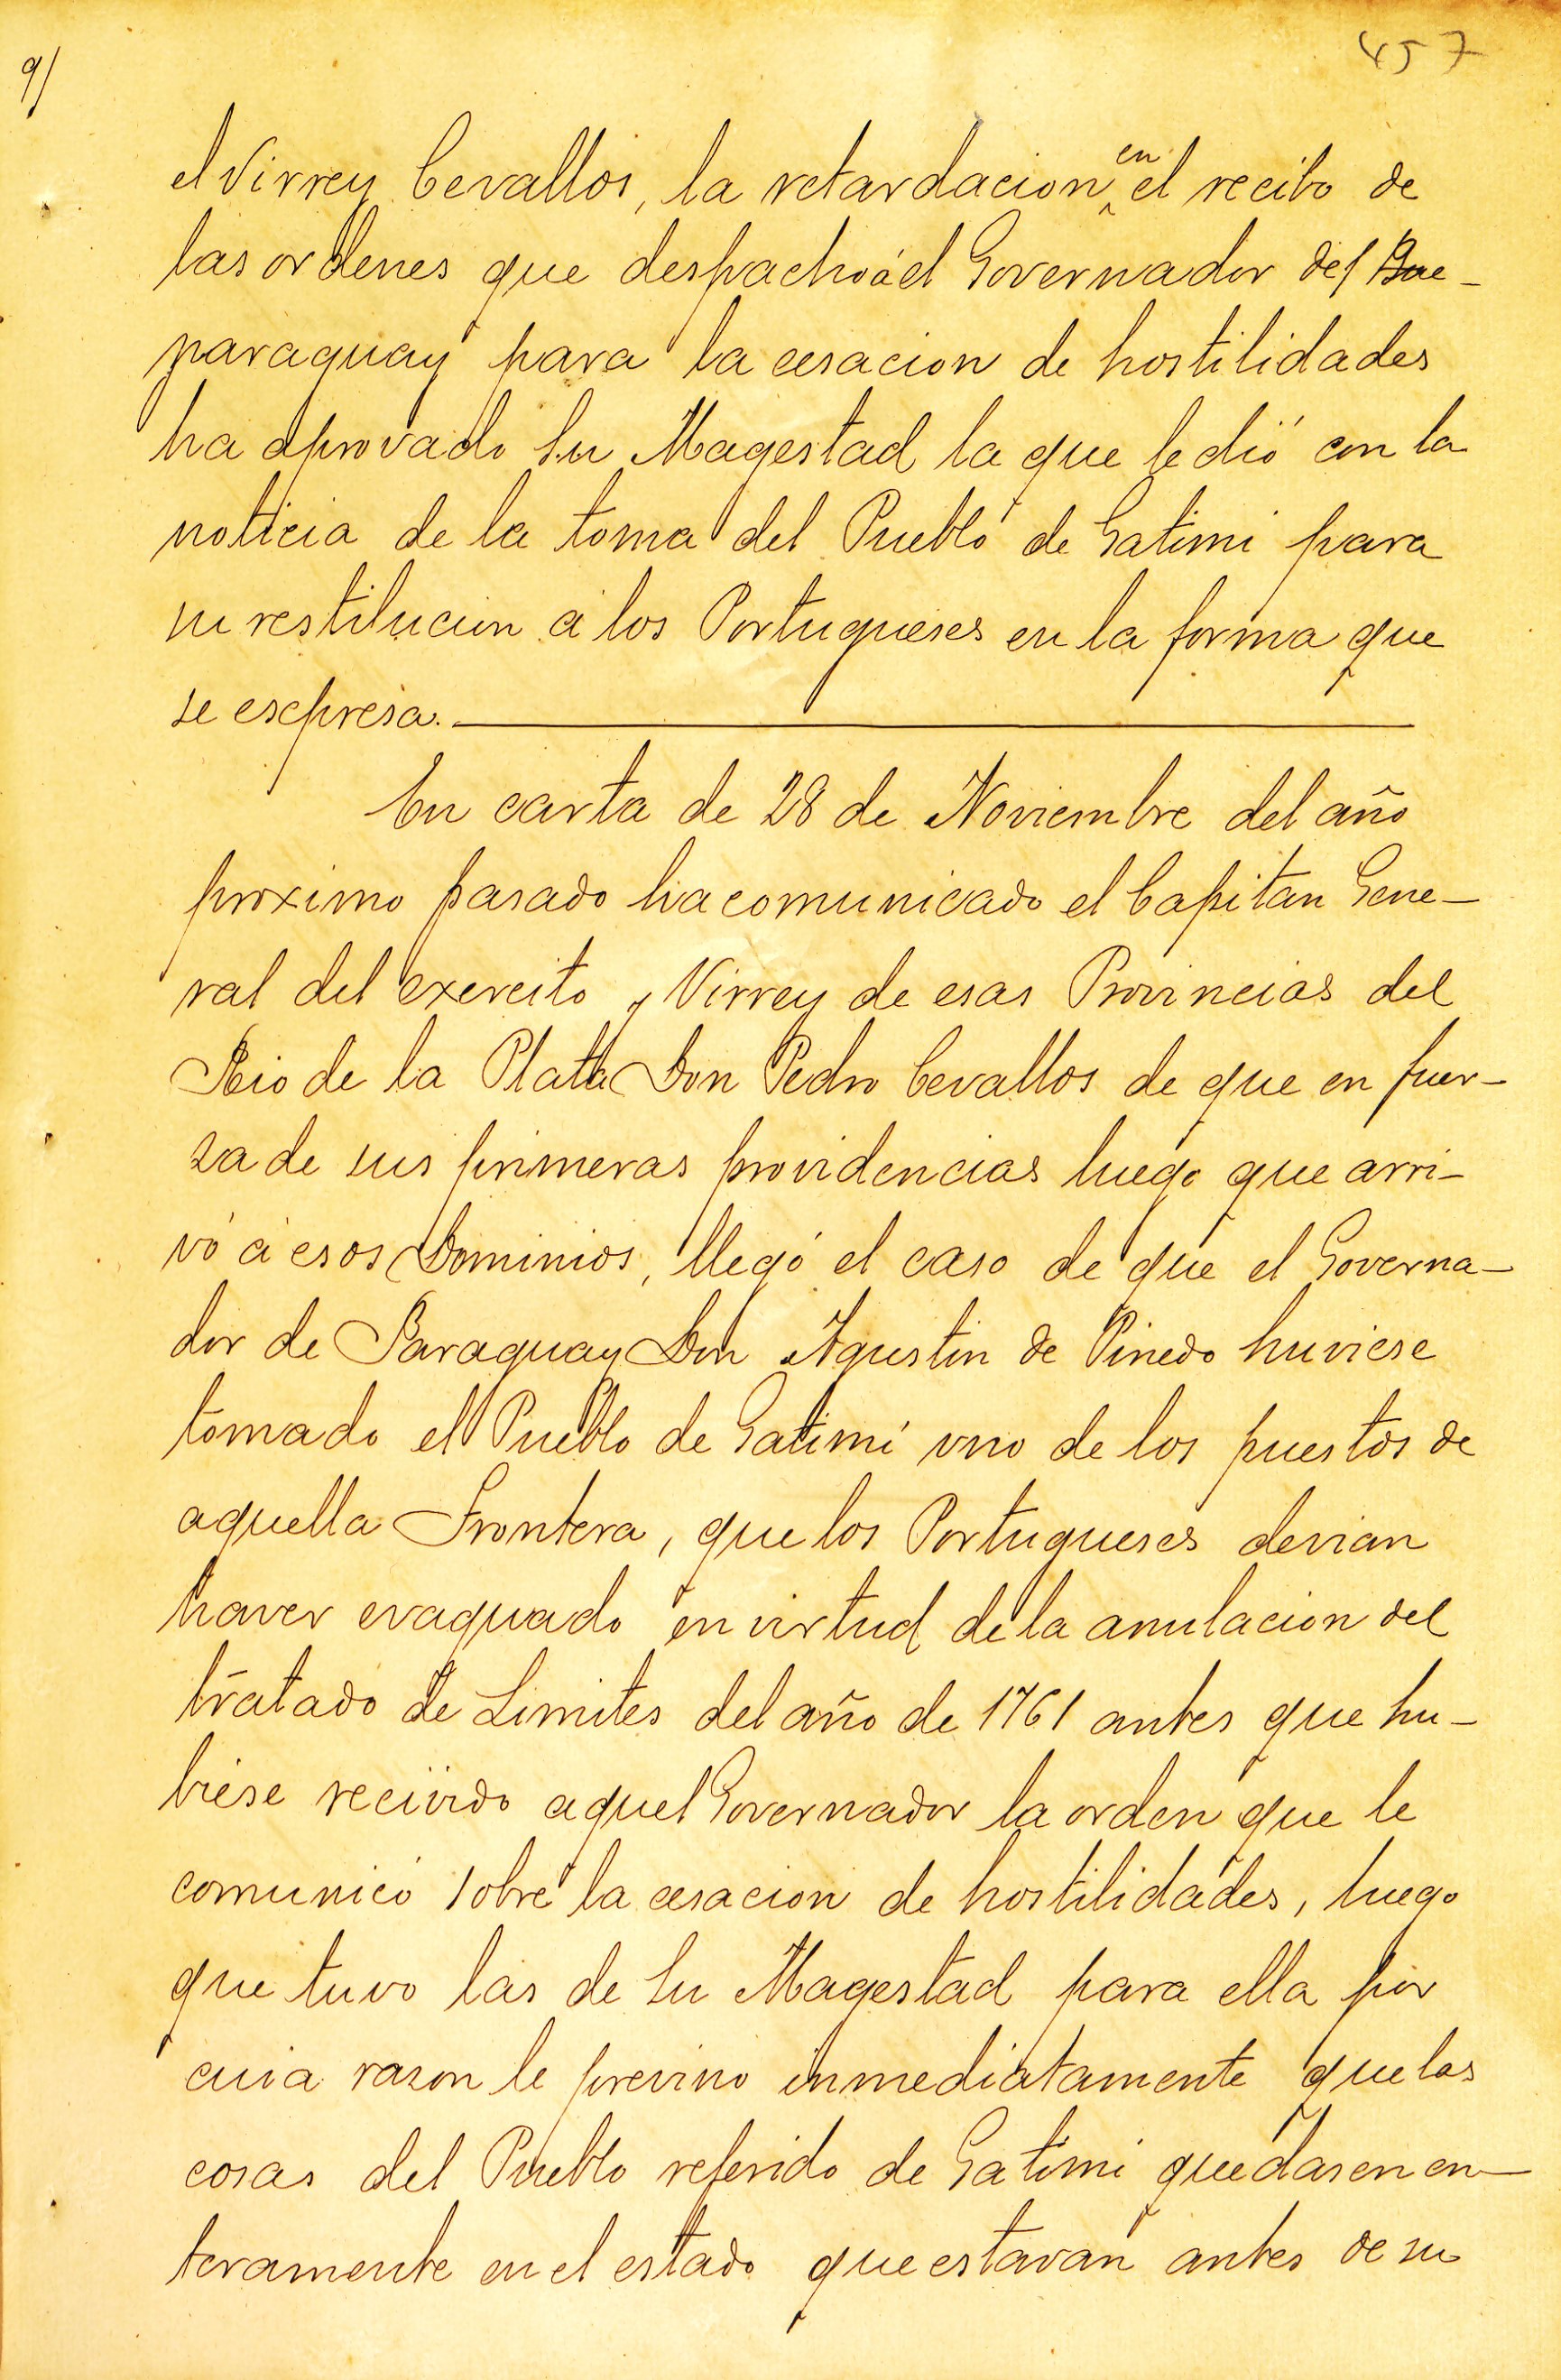 457
9/
el Virrey Cevallos, la retardacion en el recibo de
las ordenes que despachó á el Governador del Bue-
paraguay para la cesacion de hostilidades
ha aprovado Su Magestad la que le dió con la
noticia de la toma del Pueblo de Gatimi para
su restitucion á los Portugueses en la forma que
se escpresa.
En carta de 28 de Noviembre del año
proximo pasado ha comunicado el Capitan Gene-
ral del exercito y Virrey de esas Provincias del
Rio de la Plata Don Pedro Cevallos de que en fuer-
za de sus primeras providencias luego que arri-
vó á esos Dominios, llegó el caso de que el Governa-
dor de Paraguay Don Agustin de Pinedo huviese
tomado el Pueblo de Gatimí vno de los puestos de
aquella Frontera, que los Portugueses devian
haver evaquado en virtud de la anulacion del
tratado de Limites del año de 1761 antes que hu-
biese recivido aquel Governador la orden que le
comunicó sobre la cesacion de hostilidades, luego
que tuvo las de Su Magestad para ella por
cuia razon le previno inmediatamente que las
cosas del Pueblo referido de Gatimi quedasen en-
teramente en el estado que estavan antes de su